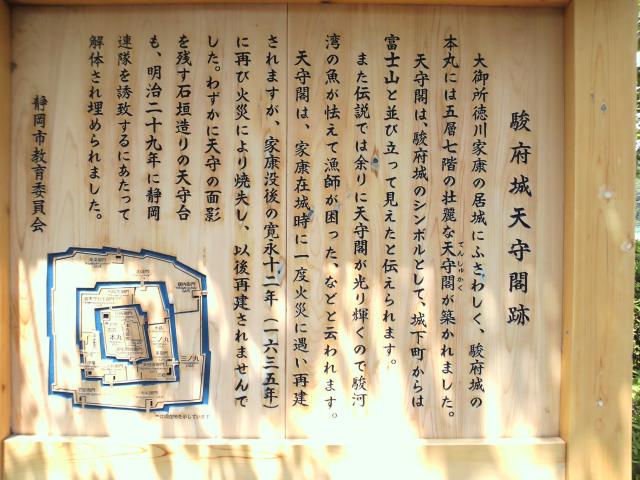 駿府城天守閣跡
大御所徳川家康の居城にふさわしく、駿府城の
本丸には五層七階の壮麗な天守閣が築かれました。
てんしゅかく
天守閣は、駿府城のシンボルとして、城下町からは
富士山と並び立って見えたと伝えられます。
また伝説では余りに天守閣が光り輝くので駿河
湾の魚が怯えて漁師が困った、などと云われます。
天守閣は、家康在城時に一度火災に遇い再建
されますが、家康没後の寛永十二年(一六三五年)
に再び火災により焼失し、以後再建されませんで
した。わずかに天守の面影
を残す石垣造りの天守台
も、明治二十九年に静岡
連隊を誘致するにあたって
解体され埋められました。
静岡市教育委員会
本丸
二ノ丸
三ノ丸